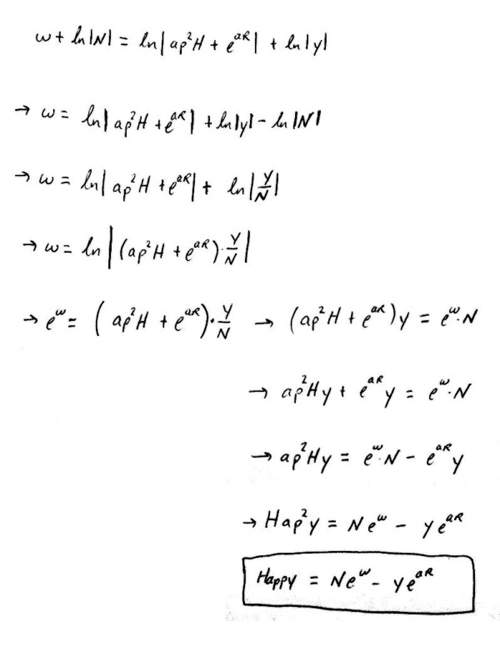 ω + ln|N| = ln|ap²H + e^{aR}| + ln|y|
→ ω = ln|ap²H + e^{aR}| + ln|y| - ln|N|
→ ω = ln|ap²H + e^{aR}| + ln|y/N|
→ ω = ln|(ap²H + e^{aR})·y/N|
→ e^ω = (ap²H + e^{aR})·y/N → (ap²H + e^{aR})y = e^ω·N
→ ap²Hy + e^{aR}y = e^ω·N
→ ap²Hy = e^ω·N - e^{aR}y
→ Hap²y = Ne^ω - ye^{aR}
Happy = Ne^ω - ye^{aR}